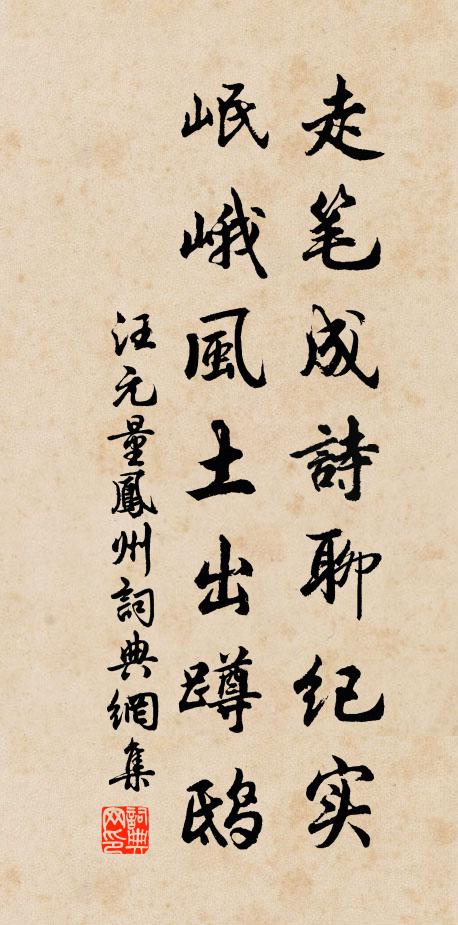 走笔成詩聊纪实
岷峨風土出蹲鸱
汪元量鳳州詞典網集
詞典网印